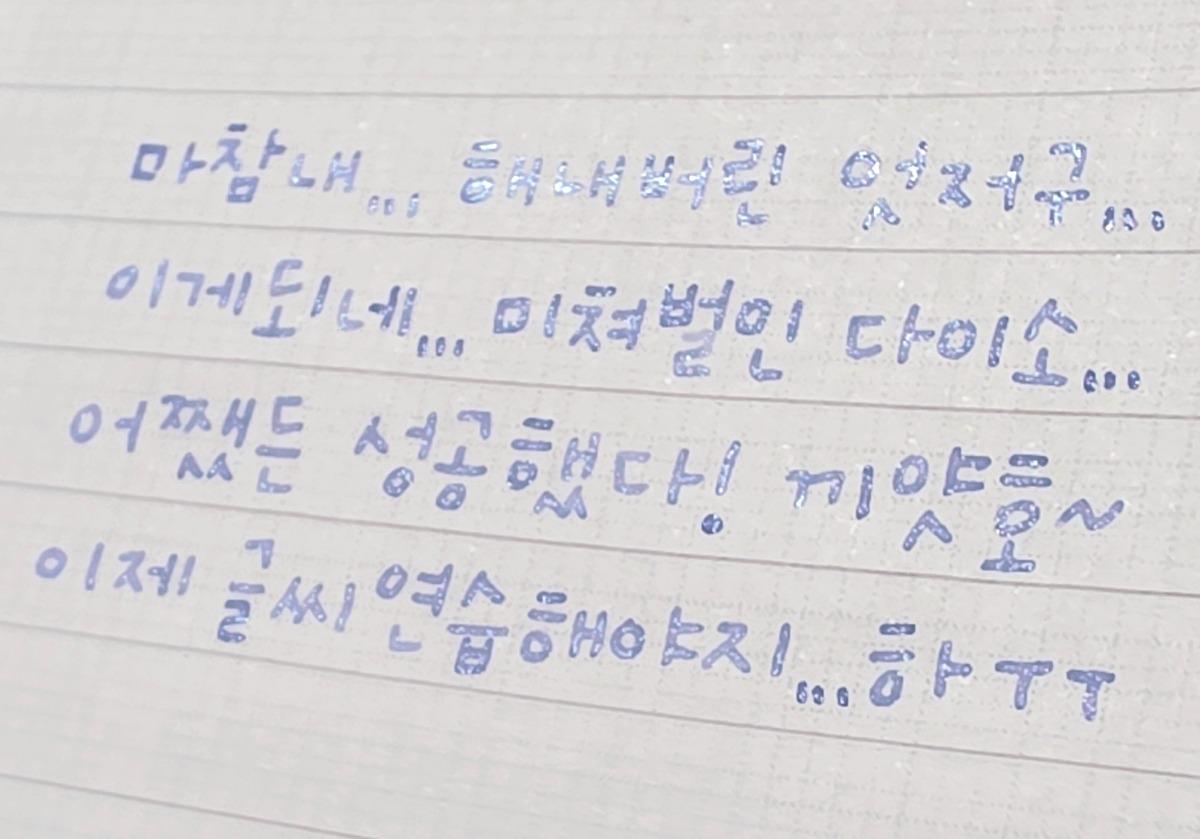 마참내... 해내버린 엊저구...
이게되네... 미쳐벌인 다이소...
어쨌든 성공했다! 끼얏홓~
이제 글씨 연습해야지...하ㅜㅜ